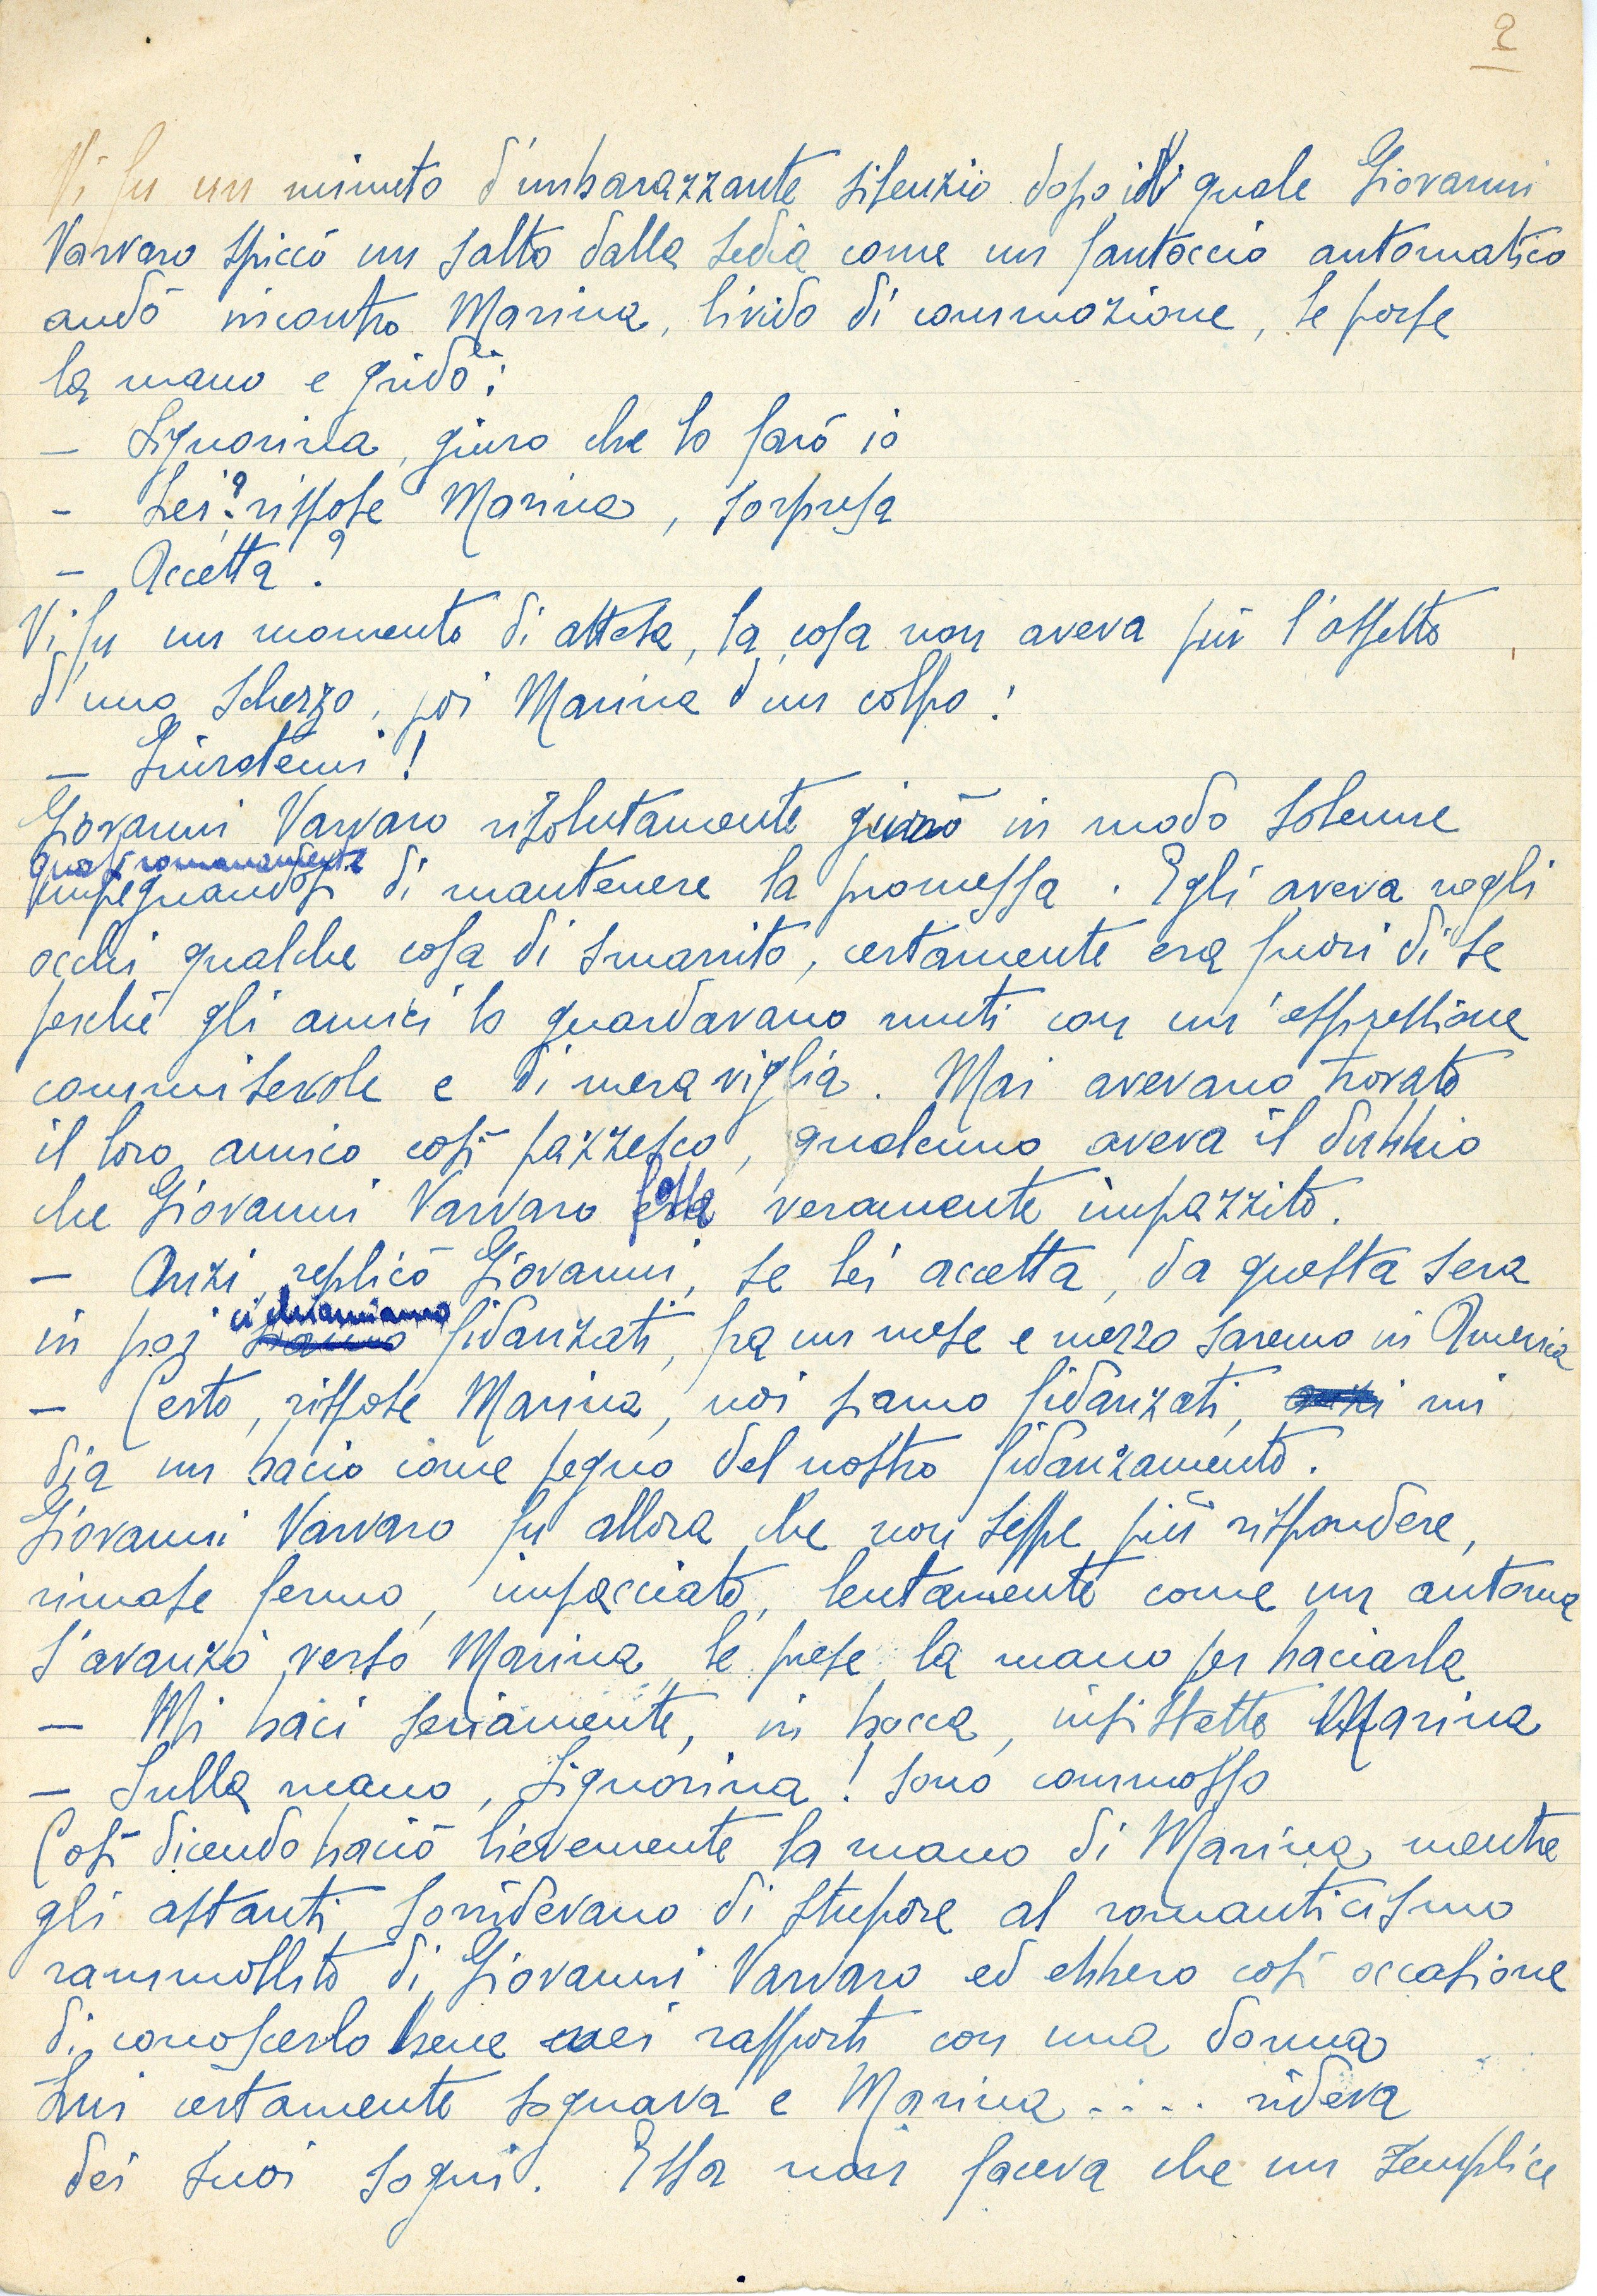 2
Vi fu un minuto d'imbarazzante silenzio dopo il quale Giovanni
Varvaro spiccò un salto dalla sedia come un fantoccio automatico
andò incontro Marina, livido di commozione, le porse
la mano e gridò:
— Signorina, giuro che lo farò io
- Lei? rispose Marina, sorpresa
- Accetta?
Vi fu un momento di attesa, la cosa non aveva più l'aspetto
d'uno scherzo, poi Marina d'un colpo:
— Giuratemi!
Giovanni Varvaro risolutamente giurò in modo solenne
quasi romanamente
impegnandosi di mantenere la promessa. Egli aveva negli
occhi qualche cosa di smarrito, certamente era fuori di se
perchè gli amici lo guardavano muti con un'espressione
commisevole e di meraviglia. Mai avevano trovato
il loro amico così pazzesco, qualcuno aveva il dubbio
che Giovanni Varvaro fosse veramente impazzito.
— Anzi, replicò Giovanni, se lei accetta, da questa sera
in poi ci chiamiamo fidanzati, fra un mese e mezzo saremo in America
— Certo, rispose Marina, noi siamo fidanzati, anzi mi
dia un bacio come segno del nostro fidanzamento.
Giovanni Varvaro fu allora che non seppe più rispondere,
rimase fermo, impacciato, lentamente come un automa
s'avanzò verso Marina, le prese la mano per baciarla
— Mi baci seriamente, in bocca, insistette Marina
— Sulla mano, Signorina! sono commosso
Così dicendo baciò lievemente la mano di Marina, mentre
gli astanti sorridevano di stupore al romanticismo
rammollito di Giovanni Varvaro ed ebbero così occasione
di conoscerlo bene nei rapporti con una donna
Lui certamente sognava e Marina .... rideva
dei suoi sogni. Essa non faceva che un semplice